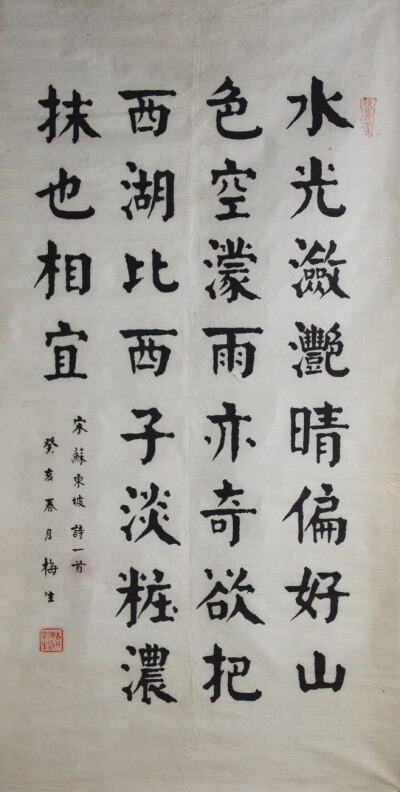 水光瀲灩晴偏好山
色空濛雨亦奇欲把
西湖比西子淡粧濃
抹也相宜
宋蘇東坡詩一首
癸亥春月梅生